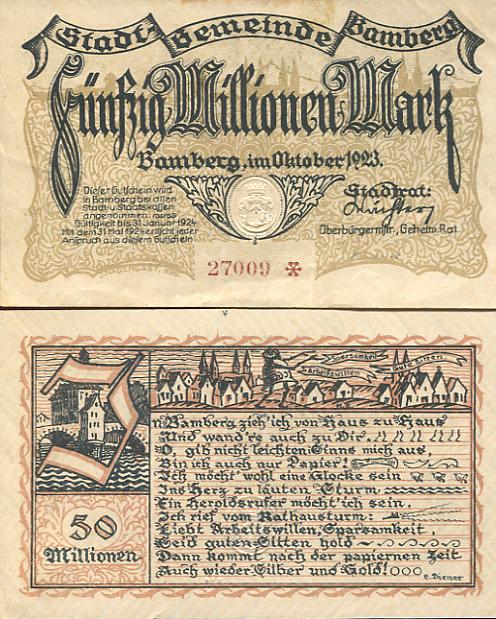 Stadt-Gemeinde Bamberg
Fünfzig Millionen Mark
Bamberg, im Oktober 1923.
Dieser Gutschein wird
in Bamberg bei allen
Stadt- u. Staatskassen
angenommen.
Gültigkeit bis 31. Januar 1924
Mit dem 31. Mai 1924 erlischt jeder
Anspruch aus diesem Gutschein
Stadtrat:
Oberbürgermstr., Geheim. Rat
27009
In Bamberg zieh' ich von Haus zu Haus
Und wand're auch zu Dir.
O, gib nicht leichten Sinns mich aus,
Bin ich auch nur Papier!
Ich möcht' wohl eine Glocke sein
Ins Herz zu läuten Sturm.
Ein Heroldsrufer möcht' ich sein,
Ich rief vom Rathausturm:
Liebt Arbeitswillen, Sparsamkeit
Seid guten Sitten hold
Dann kommt nach der papiernen Zeit
Auch wieder Silber und Gold!
Sparsamkeit
Arbeitswillen
Gute Sitten
50
Millionen
E. Diener